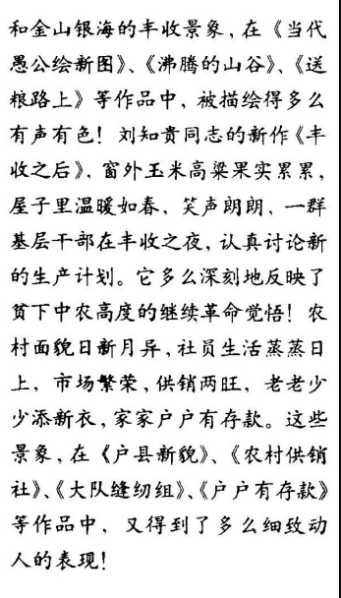 和金山银海的丰收景象，在《当代
愚公绘新图》、《沸腾的山谷》、《送
粮路上》等作品中，被描绘得多么
有声有色！刘知贵同志的新作《丰
收之后》，窗外玉米高粱果实累累，
屋子里温暖如春，笑声朗朗，一群
基层干部在丰收之夜，认真讨论新
的生产计划。它多么深刻地反映了
贫下中农高度的继续革命觉悟！农
村面貌日新月异，社员生活蒸蒸日
上，市场繁荣，供销两旺，老老少
少添新衣，家家户户有存款。这些
景象，在《户县新貌》、《农村供销
社》、《大队缝纫组》、《户户有存款》
等作品中，又得到了多么细致动
人的表现！